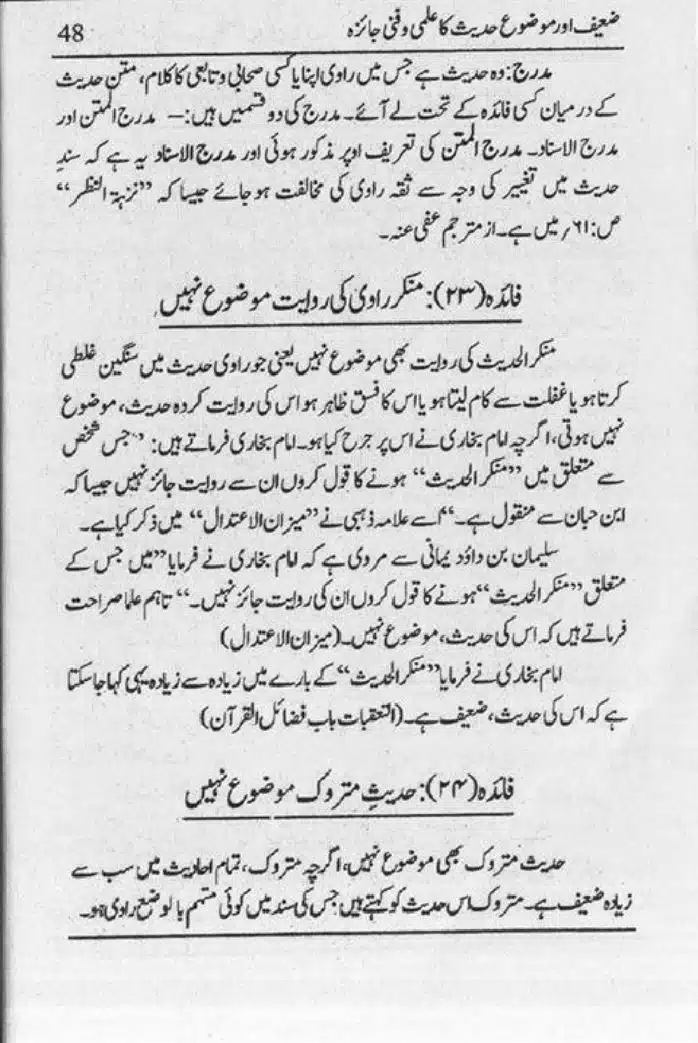 ضعیف اور موضوع حدیث کا علمی و فنی جائزہ 48
مدرج: وہ حدیث ہے جس میں راوی اپنا یا کسی صحابی و تابعی کا کلام، متن حدیث
کے درمیان کسی فائدہ کے تحت لے آئے۔ مدرج کی دو قسمیں ہیں:— مدرج المتن اور
مدرج الاسناد۔ مدرج المتن کی تعریف اوپر مذکور ہوئی اور مدرج الاسناد یہ ہے کہ سندِ
حدیث میں تغییر کی وجہ سے ثقہ راوی کی مخالفت ہو جائے جیسا کہ ”نزہۃ النظر“
ص:۶۱؍ میں ہے۔ از مترجم عفی عنہ۔
فائدہ (۲۳): منکر راوی کی روایت موضوع نہیں
منکر الحدیث کی روایت بھی موضوع نہیں یعنی جو راوی حدیث میں سنگین غلطی
کرتا ہو یا غفلت سے کام لیتا ہو یا اس کا فسق ظاہر ہو اس کی روایت کردہ حدیث، موضوع
نہیں ہوتی، اگرچہ امام بخاری نے اس پر جرح کیا ہو۔ امام بخاری فرماتے ہیں: ”جس شخص
سے متعلق میں ”منکر الحدیث“ ہونے کا قول کروں ان سے روایت جائز نہیں جیسا کہ
ابن حبان سے منقول ہے۔“ اسے علامہ ذہبی نے ”میزان الاعتدال“ میں ذکر کیا ہے۔
سلیمان بن داؤد یمانی سے مروی ہے کہ امام بخاری نے فرمایا ”میں جس کے
متعلق ”منکر الحدیث“ ہونے کا قول کروں ان کی روایت جائز نہیں۔“ تاہم علما صراحت
فرماتے ہیں کہ اس کی حدیث، موضوع نہیں۔ (میزان الاعتدال)
امام بخاری نے فرمایا ”منکر الحدیث“ کے بارے میں زیادہ سے زیادہ یہی کہا جا سکتا
ہے کہ اس کی حدیث، ضعیف ہے۔ (التعقبات باب فضائل القرآن)
فائدہ (۲۴): حدیثِ متروک موضوع نہیں
حدیث متروک بھی موضوع نہیں، اگرچہ متروک، تمام احادیث میں سب سے
زیادہ ضعیف ہے۔ متروک اس حدیث کو کہتے ہیں جس کی سند میں کوئی متہم بالوضع راوی ہو۔